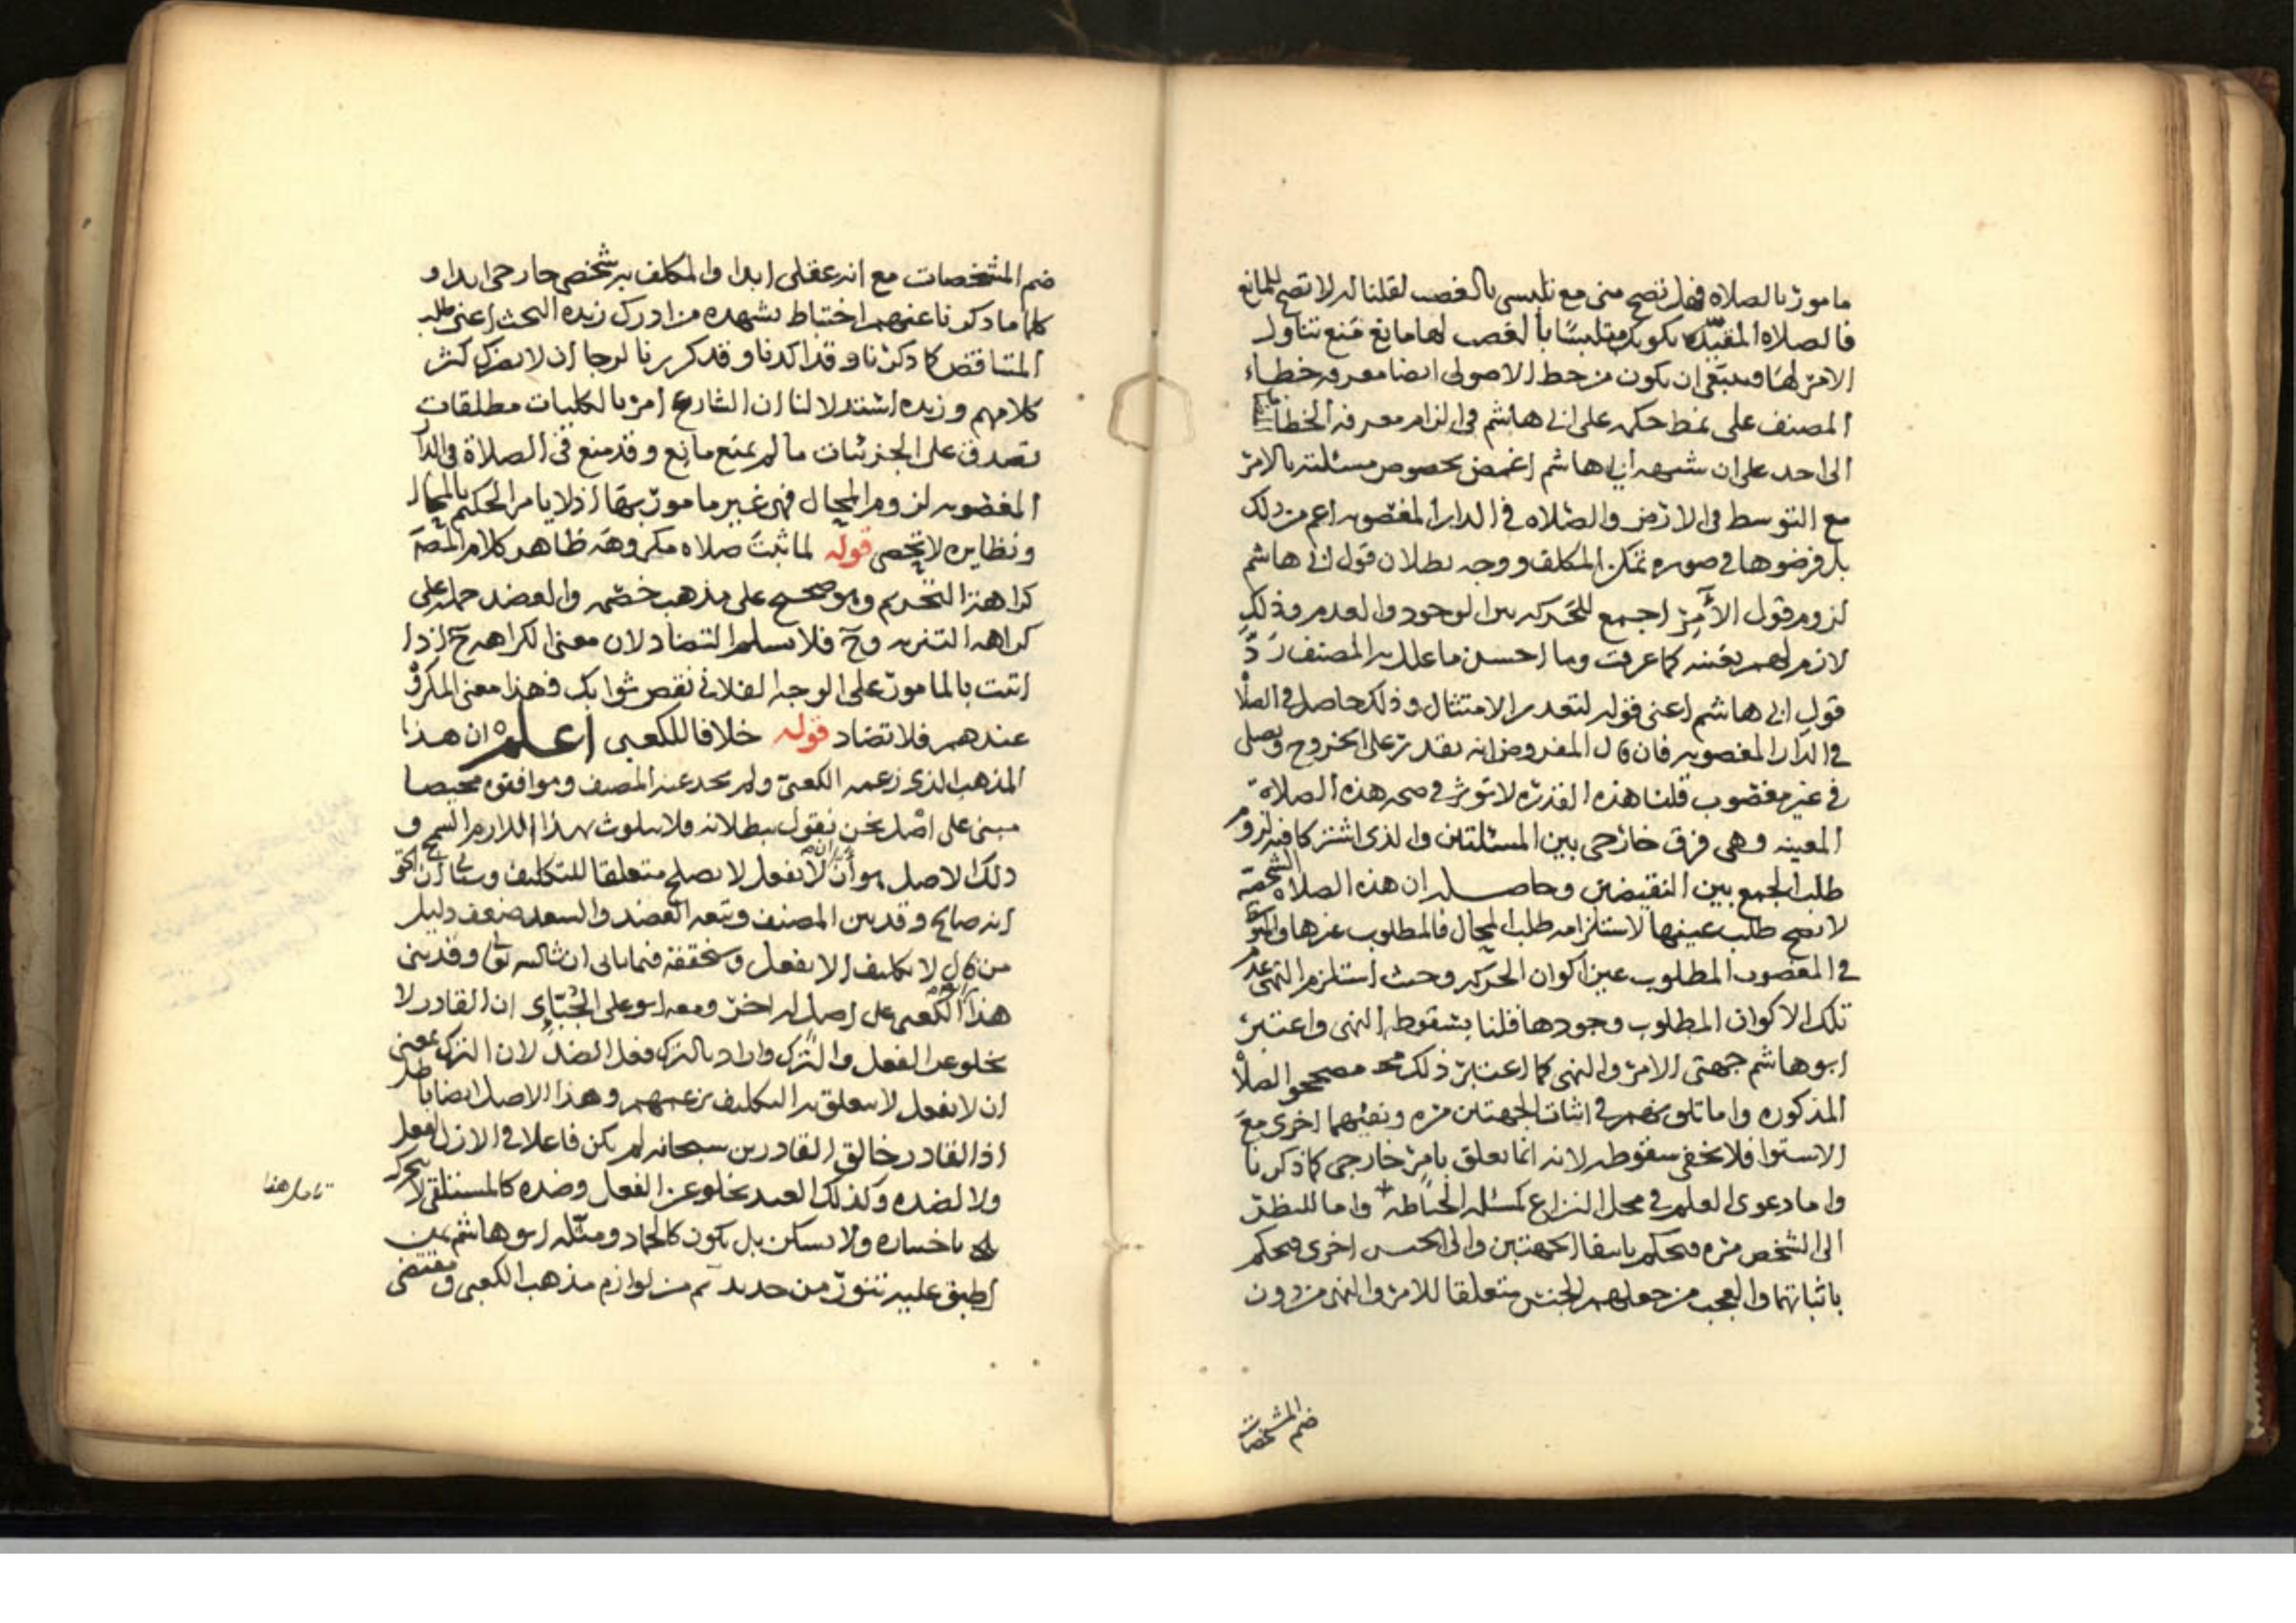 مامور بالصلاه فهل تصح مني مع تلبسي بالغصب لقلنا له لا تصح للمانع
فالصلاه المقيده بكونك متلبسا بالغصب لها مانع فمنع تناول
الامر لها وينبغي ان يكون من حظ الاصولي ايضا معرفه خطاء
المصنف على نمط حكمه على ابي هاشم في الزام معرفه الخطا
الى احد على ان شبهه ابي هاشم اغمض بخصوص مسئلته بالامر
مع التوسط في الارض والصلاه في الدار المغصوبه اعم من ذلك
بل فرضوها في صوره تمكن المكلف ووجه بطلان قول ابي هاشم
لزوم قول الآمر اجمع للحركه بين الوجود والعدم وذلك
لازم لهم بعينه كما عرفت وما احسن ما علل به المصنف رد
قول ابي هاشم اعني قوله لتعذر الامتثال وذلك حاصل في الصلاه
في الدار المغصوبه فان قال المفروض انه يقدر على الخروج ويصلي
في غير مغصوب قلنا هذه القدره لا تؤثر في صحه هذه الصلاة
المعينه وهي فرق خارجي بين المسئلتين والذي اشتركا فيه لزوم
طلب الجمع بين النقيضين وحاصله ان هذه الصلاه الشخصية
لا تصح طلب عينها لاستلزامه طلب المحال فالمطلوب غيرها
في المغصوب المطلوب عين اكوان الحركه وحيث استلزم النهي عدم
تلك الاكوان المطلوب وجودها قلنا بسقوط النهي واعتبر
ابو هاشم جهتي الامر والنهي كما اعتبر ذلك مصححوا الصلاة
المذكوره واما تلونهم في اثبات الجهتين مره ونفيهما اخرى مع
الاستوا فلا يخفى سقوطه لانه انما تعلق بامر خارجي كما ذكرنا
واما دعوى العلم في محل النزاع كمسئله الخياطه واما للنظر
الى الشخص مره فيحكم بانتفا الجهتين والى الجنس اخرى فيحكم
باثباتهما والعجب من جعلهم الجنس متعلقا للامر والنهي من دون
ضم المشخصات
ضم المشخصات مع انه عقلي ابدا والمكلف به شخص خارجي ابدا و
كلما ما ذكرنا عنهم اختباط يشهده من ادرك زبده البحث اعني طلب
المتناقض كما ذكرنا وقد اكدنا وقد كررنا لرجا ان لا يضرك كثر
كلامهم وزبده استدلالنا ان الشارع امر بالكليات مطلقات
تصدق على الجزئيات ما لم يمنع مانع وقد منع في الصلاة في الدار
المغصوبه لزوم المحال فهي غير مامور بها اذ لا يامر الحكيم بالمحال
ونظايره لا تحصى قوله لما ثبت صلاه مكروهه ظاهر كلام المصنف
كراهة التحريم وهو صحيح على مذهب خصمه والعضد حمله على
كراهه التنزيه وح فلا يسلم التضاد لان معنى الكراهه ح اذا
اتيت بالمامور على الوجه الفلاني نقص ثوابك فهذا معنى المكروه
عندهم فلا تضاد قوله خلافا للكعبي اعلم ان هذا
المذهب الذي زعمه الكعبي ولم يجد عنه المصنف وموافقوه محيصا
مبني على اصل نحن نقول ببطلانه فلا نتلوث بهذا
ذلك الاصل هو أن لا يفعل لا يصلح متعلقا للتكليف
انه صالح وقد بين المصنف وتبعه العضد والسعد ضعف دليل
من قال لا تكليف الا بفعل وسنحققه فيما ياتي ان شا الله تعالى وقد بنى
هذا الكعبي على اصل له اخر ومعه ابو علي الجبائي ان القادر لا
يخلو عن الفعل والترك واراد بالترك فعل الضد لان الترك بمعنى
ان لا يفعل لا يتعلق به التكليف بزعمهم وهذا الاصل ايضا باطل
اذ القادر خالق القادرين سبحانه لم يكن فاعلا في الازل لفعل
ولا لضده وكذلك العبد يخلو عن الفعل وضده كالمستلقي لا يتحرك
باختياره ولا يسكن بل يكون كالجماد ومثله ابو هاشم بمن
اطبق عليه تنور من حديد ثم من لوازم مذهب الكعبي ومقتضى
تامل هنا